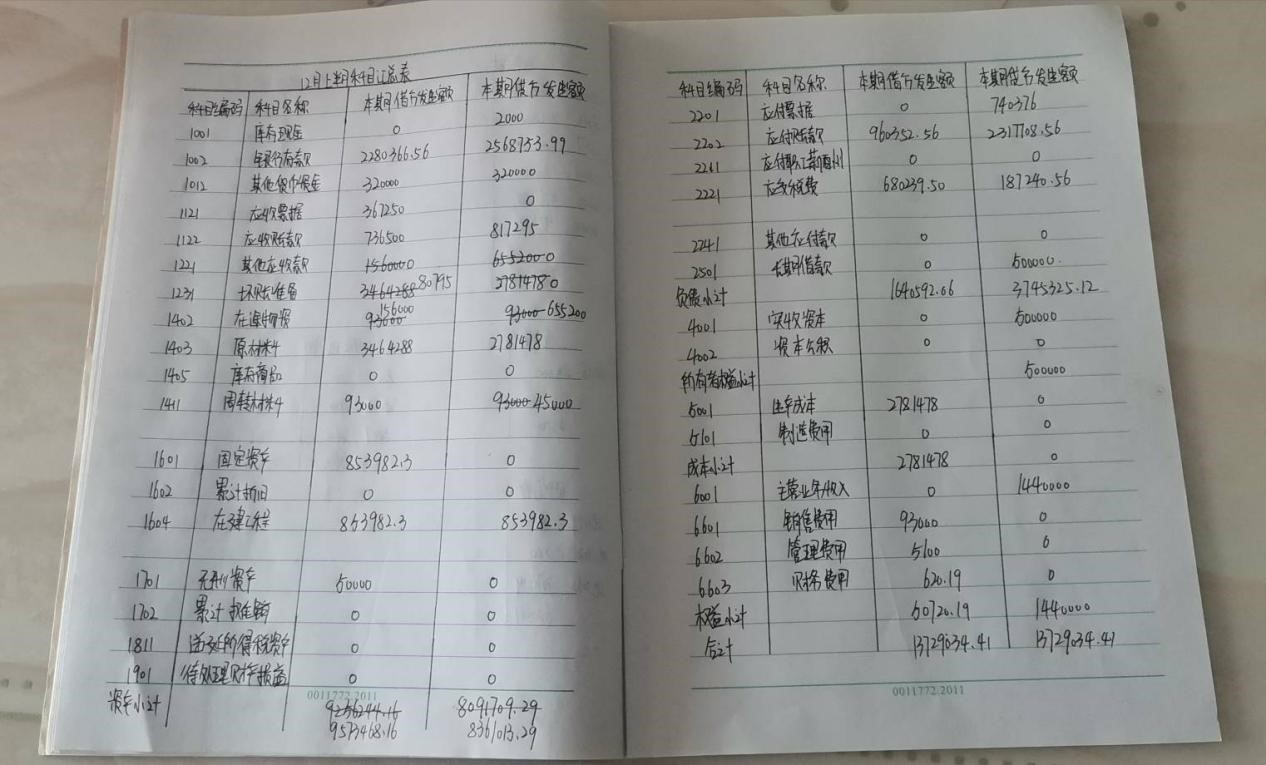 12月上半月科目汇总表
科目编码 科目名称 本期借方发生额 本期贷方发生额
1001 库存现金 0 2000
1002 银行存款 2280366.56 2568753.99
1012 其他货币资金 320000 320000
1121 应收票据 367250 0
1122 应收账款 736500 817295
1221 其他应收款 1560000 655200 0
1231 坏账准备 3464288 80795 2781478 0
1402 在途物资 93000 156000 93000 655200
1403 原材料 3464288 2781478
1405 库存商品 0 0
1411 周转材料 93000 93000 45000
1601 固定资产 853982.3 0
1602 累计折旧 0 0
1604 在建工程 853982.3 853982.3
1701 无形资产 50000 0
1702 累计摊销 0 0
1811 递延所得税资产 0 0
1901 待处理财产损益 0 0
资产小计 9256244.16 8091709.29
9573468.16 8361013.29
0011772.2011
科目编码 科目名称 本期借方发生额 本期贷方发生额
2201 应付票据 0 740376
2202 应付账款 960352.56 2317708.56
2211 应付职工薪酬 0 0
2221 应交税费 680239.50 187240.56
2241 其他应付款 0 0
2501 长期借款 0 500000
负债小计 1640592.06 3745325.12
4001 实收资本 0 500000
4002 资本公积 0 0
所有者权益小计 500000
5001 生产成本 2781478 0
5101 制造费用 0 0
成本小计 2781478 0
6001 主营业务收入 0 1440000
6601 销售费用 93000 0
6602 管理费用 5100 0
6603 财务费用 620.19 0
权益小计 50720.19 1440000
合计 13729034.41 13729034.41
0011772.2011